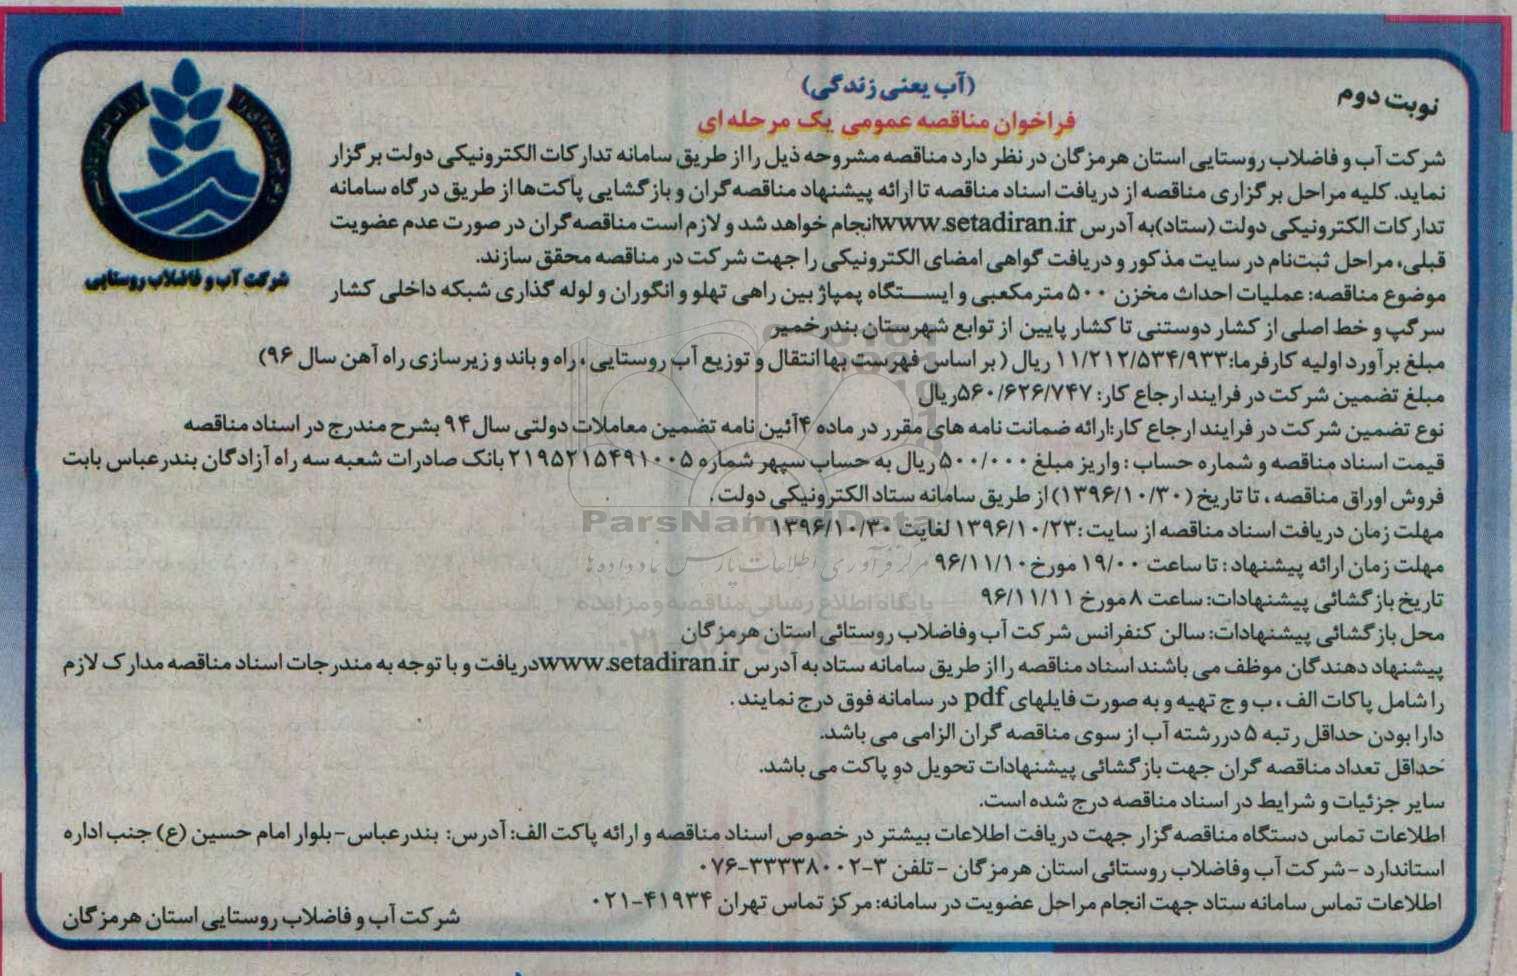 نوبت دوم
(آب یعنی زندگی)
فراخوان مناقصه عمومی یک مرحله ای
شرکت آب و فاضلاب روستایی استان هرمزگان در نظر دارد مناقصه مشروحه ذیل را از طریق سامانه تدارکات الکترونیکی دولت برگزار
نماید. کلیه مراحل برگزاری مناقصه از دریافت اسناد مناقصه تا ارائه پیشنهاد مناقصه‌گران و بازگشایی پاکت‌ها از طریق درگاه سامانه
تدارکات الکترونیکی دولت (ستاد)به آدرس www.setadiran.irانجام خواهد شد و لازم است مناقصه‌گران در صورت عدم عضویت
قبلی، مراحل ثبت‌نام در سایت مذکور و دریافت گواهی امضای الکترونیکی را جهت شرکت در مناقصه محقق سازند.
شرکت آب و فاضلاب روستایی
موضوع مناقصه: عملیات احداث مخزن ۵۰۰ مترمکعبی و ایستگاه پمپاژ بین راهی تهلو و انگوران و لوله گذاری شبکه داخلی کشار
سرگپ و خط اصلی از کشار دوستنی تا کشار پایین از توابع شهرستان بندرخمیر
مبلغ برآورد اولیه کارفرما:۱۱/۲۱۲/۵۳۴/۹۳۳ ریال ( بر اساس فهرست بها انتقال و توزیع آب روستایی ، راه و باند و زیرسازی راه آهن سال ۹۶)
مبلغ تضمین شرکت در فرایند ارجاع کار: ۵۶۰/۶۲۶/۷۴۷ریال
نوع تضمین شرکت در فرایند ارجاع کار:ارائه ضمانت نامه های مقرر در ماده ۴آئین نامه تضمین معاملات دولتی سال ۹۴ بشرح مندرج در اسناد مناقصه
قیمت اسناد مناقصه و شماره حساب : واریز مبلغ ۵۰۰/۰۰۰ ریال به حساب سپهر شماره ۲۱۹۵۲۱۵۴۹۱۰۰۵ بانک صادرات شعبه سه راه آزادگان بندرعباس بابت
فروش اوراق مناقصه ، تا تاریخ (۱۳۹۶/۱۰/۳۰) از طریق سامانه ستاد الکترونیکی دولت .
ParsNamadData
مهلت زمان دریافت اسناد مناقصه از سایت :۱۳۹۶/۱۰/۲۳ لغایت ۱۳۹۶/۱۰/۳۰
مهلت زمان ارائه پیشنهاد : تا ساعت ۱۹/۰۰ مورخ ۹۶/۱۱/۱۰
مرکز فرآوری اطلاعات پارس نماد داده ها
تاریخ بازگشائی پیشنهادات: ساعت ۸ مورخ ۹۶/۱۱/۱۱
پایگاه اطلاع رسانی مناقصه و مزایده
محل بازگشائی پیشنهادات: سالن کنفرانس شرکت آب وفاضلاب روستائی استان هرمزگان
پیشنهاد دهندگان موظف می باشند اسناد مناقصه را از طریق سامانه ستاد به آدرس www.setadiran.irدریافت و با توجه به مندرجات اسناد مناقصه مدارک لازم
را شامل پاکات الف ، ب و ج تهیه و به صورت فایلهای pdf در سامانه فوق درج نمایند .
دارا بودن حداقل رتبه ۵ در رشته آب از سوی مناقصه گران الزامی می باشد.
حداقل تعداد مناقصه گران جهت بازگشائی پیشنهادات تحویل دو پاکت می باشد.
سایر جزئیات و شرایط در اسناد مناقصه درج شده است.
اطلاعات تماس دستگاه مناقصه‌گزار جهت دریافت اطلاعات بیشتر در خصوص اسناد مناقصه و ارائه پاکت الف: آدرس: بندرعباس-بلوار امام حسین (ع) جنب اداره
استاندارد -شرکت آب وفاضلاب روستائی استان هرمزگان - تلفن ۳-۳۳۳۳۸۰۰۲-۰۷۶
اطلاعات تماس سامانه ستاد جهت انجام مراحل عضویت در سامانه: مرکز تماس تهران ۴۱۹۳۴-۰۲۱
شرکت آب و فاضلاب روستایی استان هرمزگان